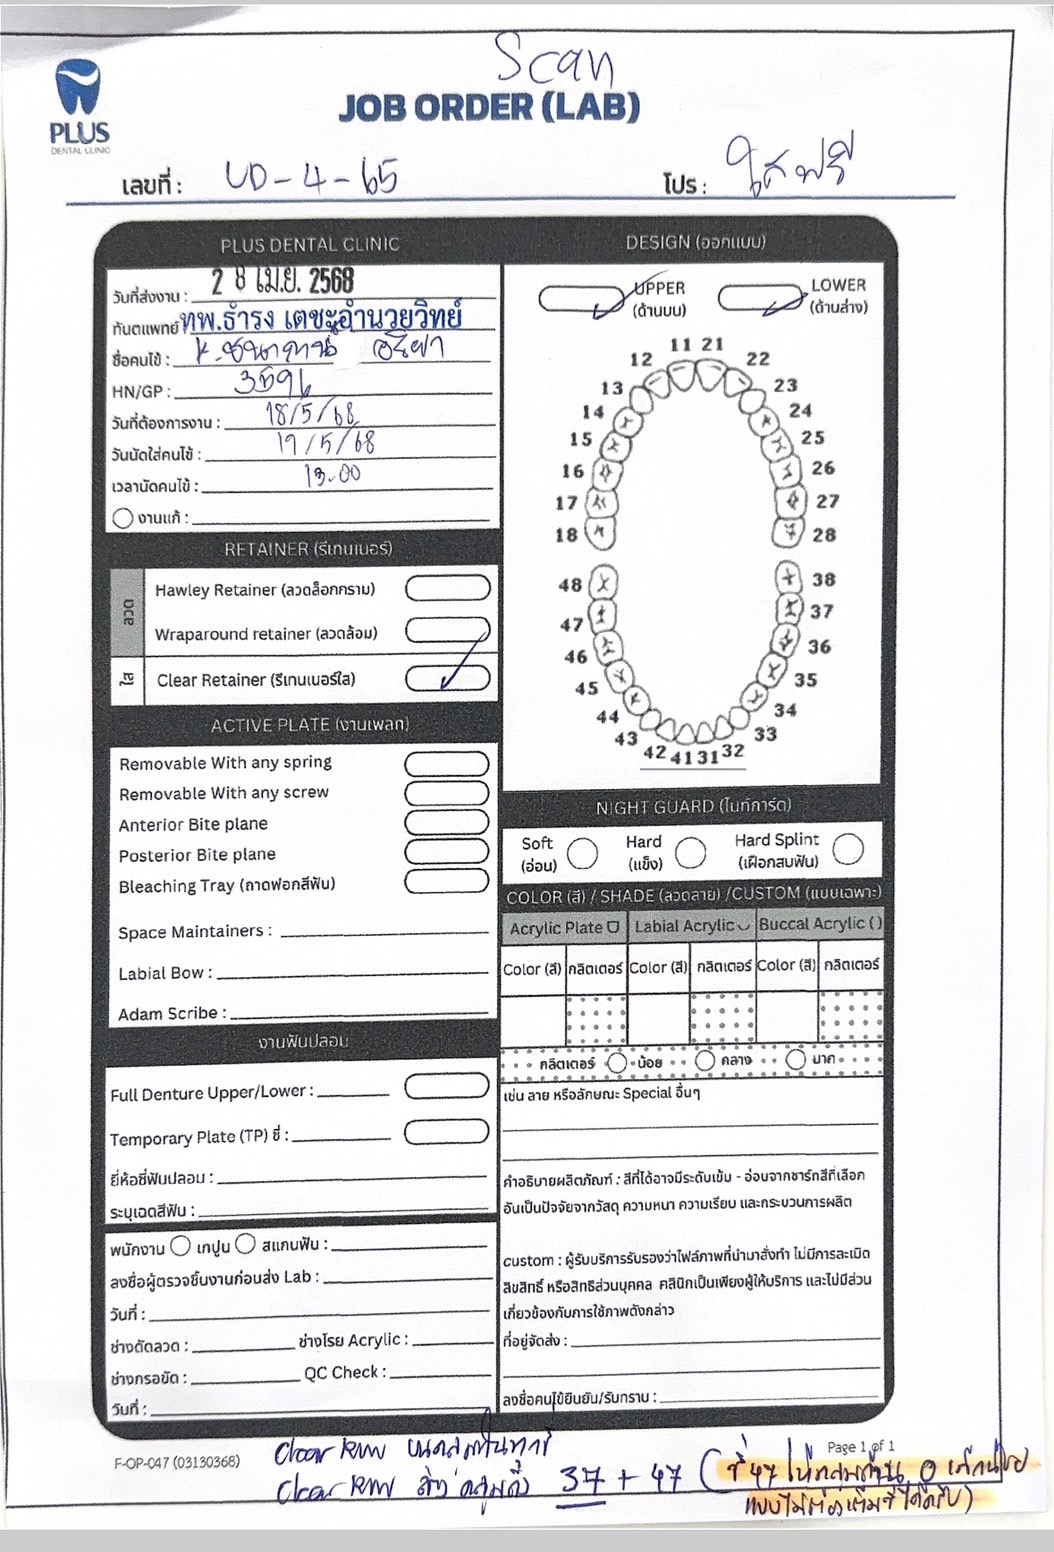 Scan
PLUS
DENTAL CLINIC
JOB ORDER (LAB)
เลขที่ : UD-4-65
โปร : ใสฟรี
PLUS DENTAL CLINIC
วันที่ส่งงาน : 28 เม.ย. 2568
ทันตแพทย์ ทพ.ธำรง เตชะอำนวยวิทย์
ชื่อคนไข้ :
HN/GP : 3596
วันที่ต้องการงาน : 18/5/68
วันนัดใส่คนไข้ : 19/5/68
เวลานัดคนไข้ : 13.00
งานแก้ :
RETAINER (รีเทนเนอร์)
ลวด
Hawley Retainer (ลวดล็อกกราม)
Wraparound retainer (ลวดล้อม)
ใส
Clear Retainer (รีเทนเนอร์ใส)
ACTIVE PLATE (งานเพลท)
Removable With any spring
Removable With any screw
Anterior Bite plane
Posterior Bite plane
Bleaching Tray (ถาดฟอกสีฟัน)
Space Maintainers :
Labial Bow :
Adam Scribe :
งานฟันปลอม
Full Denture Upper/Lower :
Temporary Plate (TP) ซี่ :
ยี่ห้อซี่ฟันปลอม :
ระบุเฉดสีฟัน :
พนักงาน เทปูน สแกนฟัน :
ลงชื่อผู้ตรวจชิ้นงานก่อนส่ง Lab :
วันที่ :
ช่างดัดลวด : ช่างโรย Acrylic :
ช่างกรอขัด : QC Check :
วันที่ :
DESIGN (ออกแบบ)
UPPER
(ด้านบน)
LOWER
(ด้านล่าง)
11 21
12 22
13 23
14 24
15 25
16 26
17 27
18 28
48 38
47 37
46 36
45 35
44 34
43 33
42 41 31 32
NIGHT GUARD (ไนท์การ์ด)
Soft
(อ่อน)
Hard
(แข็ง)
Hard Splint
(เฝือกสบฟัน)
COLOR (สี) / SHADE (ลวดลาย) /CUSTOM (แบบเฉพาะ)
Acrylic Plate Labial Acrylic Buccal Acrylic ()
Color (สี) กลิตเตอร์ Color (สี) กลิตเตอร์ Color (สี) กลิตเตอร์
กลิตเตอร์ น้อย กลาง มาก
เช่น ลาย หรือลักษณะ Special อื่นๆ
คำอธิบายผลิตภัณฑ์ : สีที่ได้อาจมีระดับเข้ม - อ่อนจากชาร์ทสีที่เลือก
อันเป็นปัจจัยจากวัสดุ ความหนา ความเรียบ และกระบวนการผลิต
custom : ผู้รับบริการรับรองว่าไฟล์ภาพที่นำมาสั่งทำ ไม่มีการละเมิด
ลิขสิทธิ์ หรือสิทธิส่วนบุคคล คลินิกเป็นเพียงผู้ให้บริการ และไม่มีส่วน
เกี่ยวข้องกับการใช้ภาพดังกล่าว
ที่อยู่จัดส่ง :
ลงชื่อคนไข้ยืนยัน/รับทราบ :
F-OP-047 (03130368)
Page 1 of 1
Clear
Clear ล่าง คลุมถึง 37 + 47 (ซี่ 47